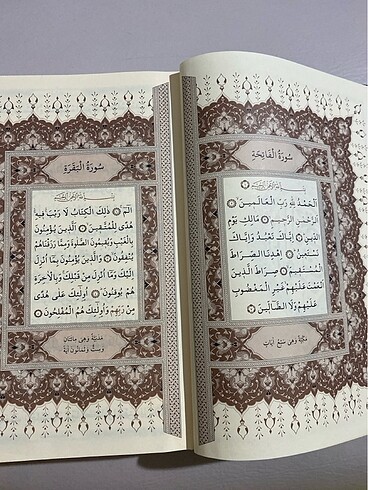 سُورَةُ الْفَاتِحَةِ
بِسْمِ اللهِ الرَّحْمٰنِ الرَّحِيمِ
اَلْحَمْدُ لِلّٰهِ رَبِّ الْعَالَمِينَ ﴿١﴾
اَلرَّحْمٰنِ الرَّحِيمِ ﴿٢﴾ مَالِكِ يَوْمِ
الدِّينِ ﴿٣﴾ اِيَّاكَ نَعْبُدُ وَاِيَّاكَ
نَسْتَعِينُ ﴿٤﴾ اِهْدِنَا الصِّرَاطَ
الْمُسْتَقِيمَ ﴿٥﴾ صِرَاطَ الَّذِينَ
اَنْعَمْتَ عَلَيْهِمْ غَيْرِ الْمَغْضُوبِ
عَلَيْهِمْ وَلَا الضَّٓالِّينَ
مَكِّيَّةٌ وَهِيَ سَبْعُ اٰيَاتٍ
سُورَةُ الْبَقَرَةِ
بِسْمِ اللهِ الرَّحْمٰنِ الرَّحِيمِ
الٓمٓ ﴿١﴾ ذٰلِكَ الْكِتَابُ لَا رَيْبَ فِيهِ
هُدًى لِلْمُتَّقِينَ ﴿٢﴾ اَلَّذِينَ يُؤْمِنُونَ
بِالْغَيْبِ وَيُقِيمُونَ الصَّلٰوةَ وَمِمَّا رَزَقْنَاهُمْ
يُنْفِقُونَ ﴿٣﴾ وَالَّذِينَ يُؤْمِنُونَ بِمَٓا اُنْزِلَ
اِلَيْكَ وَمَٓا اُنْزِلَ مِنْ قَبْلِكَ وَبِالْاٰخِرَةِ
هُمْ يُوقِنُونَ ﴿٤﴾ اُو۬لٰٓئِكَ عَلٰى هُدًى
مِنْ رَبِّهِمْ وَاُو۬لٰٓئِكَ هُمُ الْمُفْلِحُونَ ﴿٥﴾
مَدَنِيَّةٌ وَهِيَ مِائَتَانِ
وَسِتٌّ وَثَمَانُونَ اٰيَةً